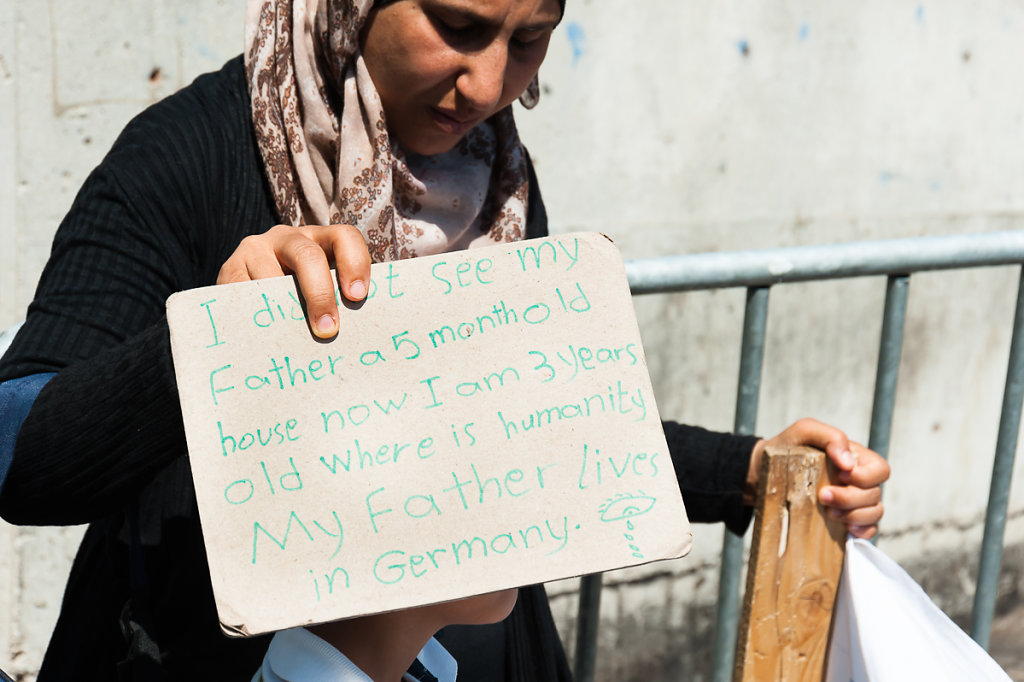 I did not see my
Father a 5 month old
house now I am 3 years
old where is humanity
My Father lives
in Germany.